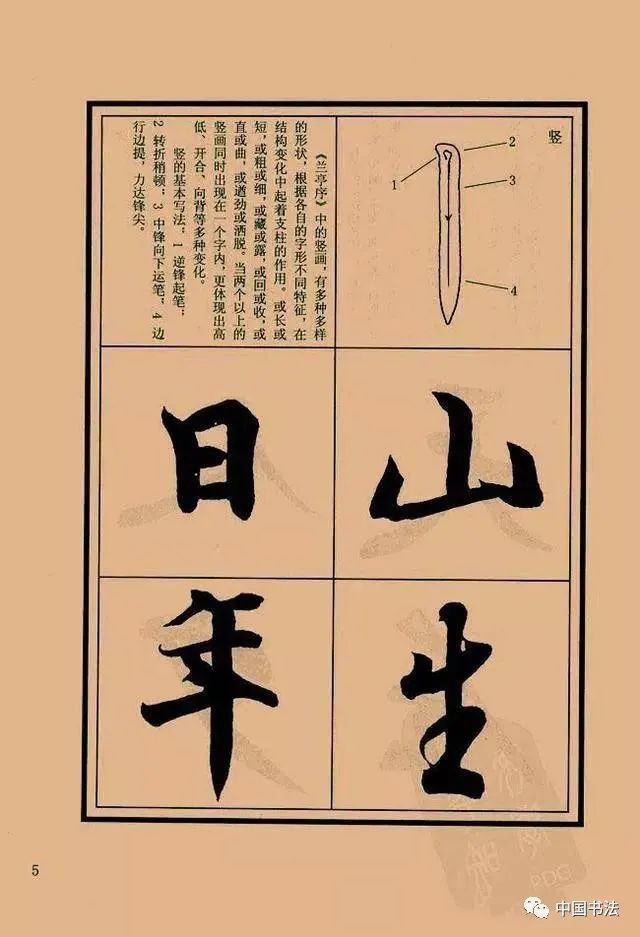 竖
1
2
3
4
《兰亭序》中的竖画，有多种多样
的形状，根据各自的字形不同特征，在
结构变化中起着支柱的作用。或长或
短，或粗或细，或藏或露，或回或收，或
直或曲，或遒劲或洒脱。当两个以上的
竖画同时出现在一个字内，更体现出高
低、开合、向背等多种变化。
竖的基本写法：1 逆锋起笔；
2 转折稍顿；3 中锋向下运笔；4 边
行边提，力达锋尖。
山
日
生
年
5
PDG
中国书法